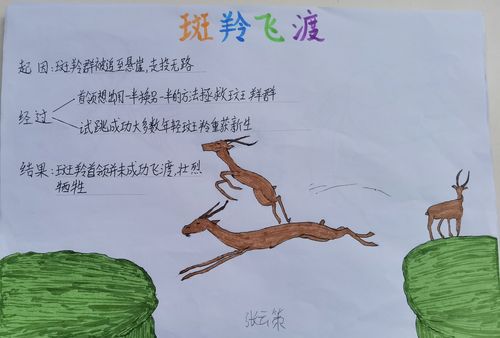 斑羚飞渡
起因:斑羚群被逼至悬崖,走投无路
经过
首领想出用一半换另一半的方法拯救斑羚群
试跳成功大多数年轻斑羚重获新生
结果:斑羚首领并未成功飞渡,壮烈
牺牲
张云策